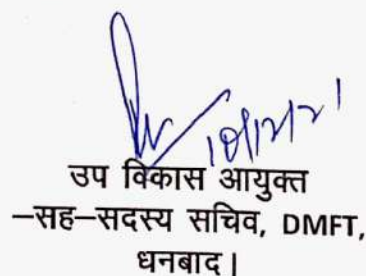 10/12/21
उप विकास आयुक्त
–सह–सदस्य सचिव, DMFT,
धनबाद।